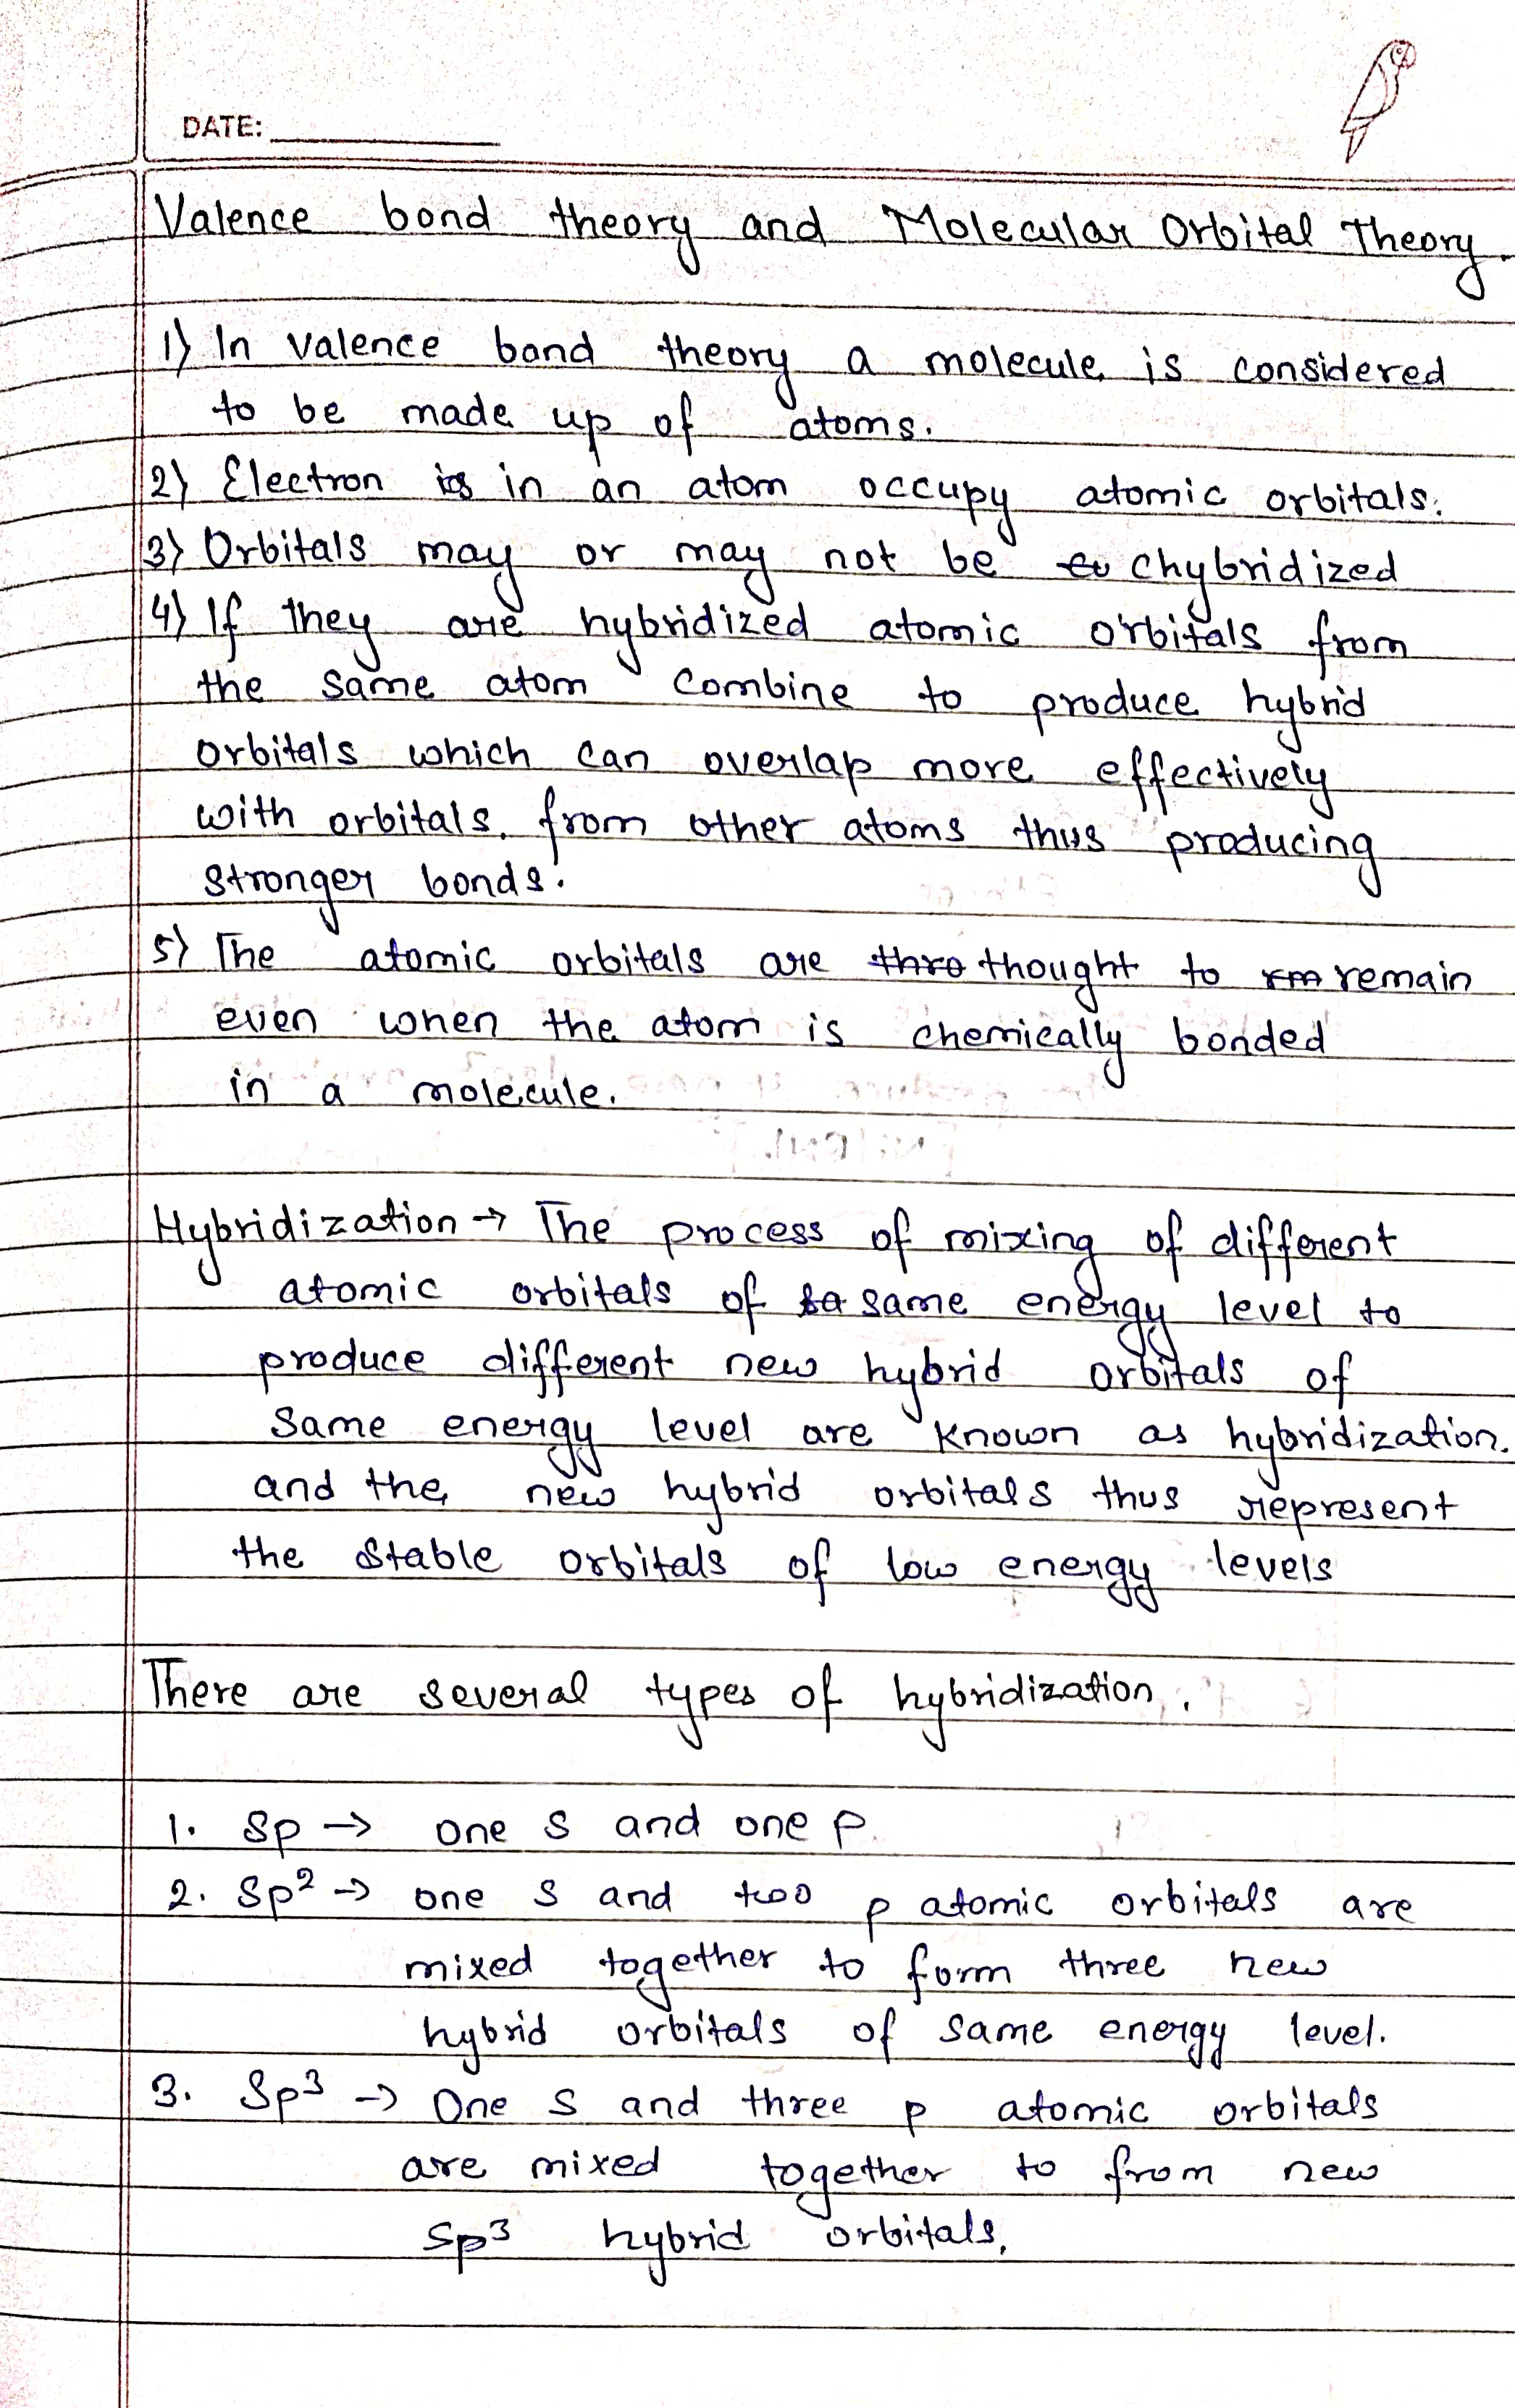 DATE:
Valence bond theory and Molecular Orbital Theory.
1) In valence bond theory a molecule is considered
to be made up of atoms.
2) Electron in an atom occupy atomic orbitals.
3) Orbitals may or may not be chybridized
4) If they are hybridized atomic orbitals from
the same atom combine to produce hybrid
orbitals which can overlap more effectively
with orbitals from other atoms thus producing
stronger bonds.
5) The atomic orbitals are thought to remain
even when the atom is chemically bonded
in a molecule.
Hybridization → The process of mixing of different
atomic orbitals of same energy level to
produce different new hybrid orbitals of
same energy level are known as hybridization.
and the new hybrid orbitals thus represent
the stable orbitals of low energy levels
There are several types of hybridization.
1. Sp → one s and one p.
2. Sp² → one s and two p atomic orbitals are
mixed together to form three new
hybrid orbitals of same energy level.
3. Sp³ → One s and three p atomic orbitals
are mixed together to from new
sp³ hybrid orbitals,